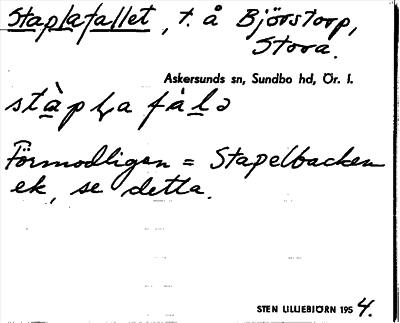 Staplafallet, t. å Björstorp,
Stora.
Askersunds sn, Sundbo hd, Ör. l.
stàpḷa fàlə
Förmodligen = Stapelbacken
ek, se detta.
STEN LILLIEBJÖRN 1954.